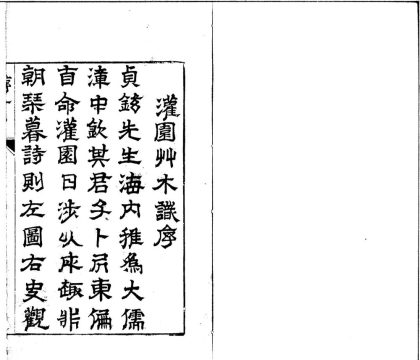 灌園艸木識序
貞鉉先生海内推爲大儒
漳中欽其君子卜居東偏
自命灌園日涉以成趣非
朝琴暮詩則左圖右史觀